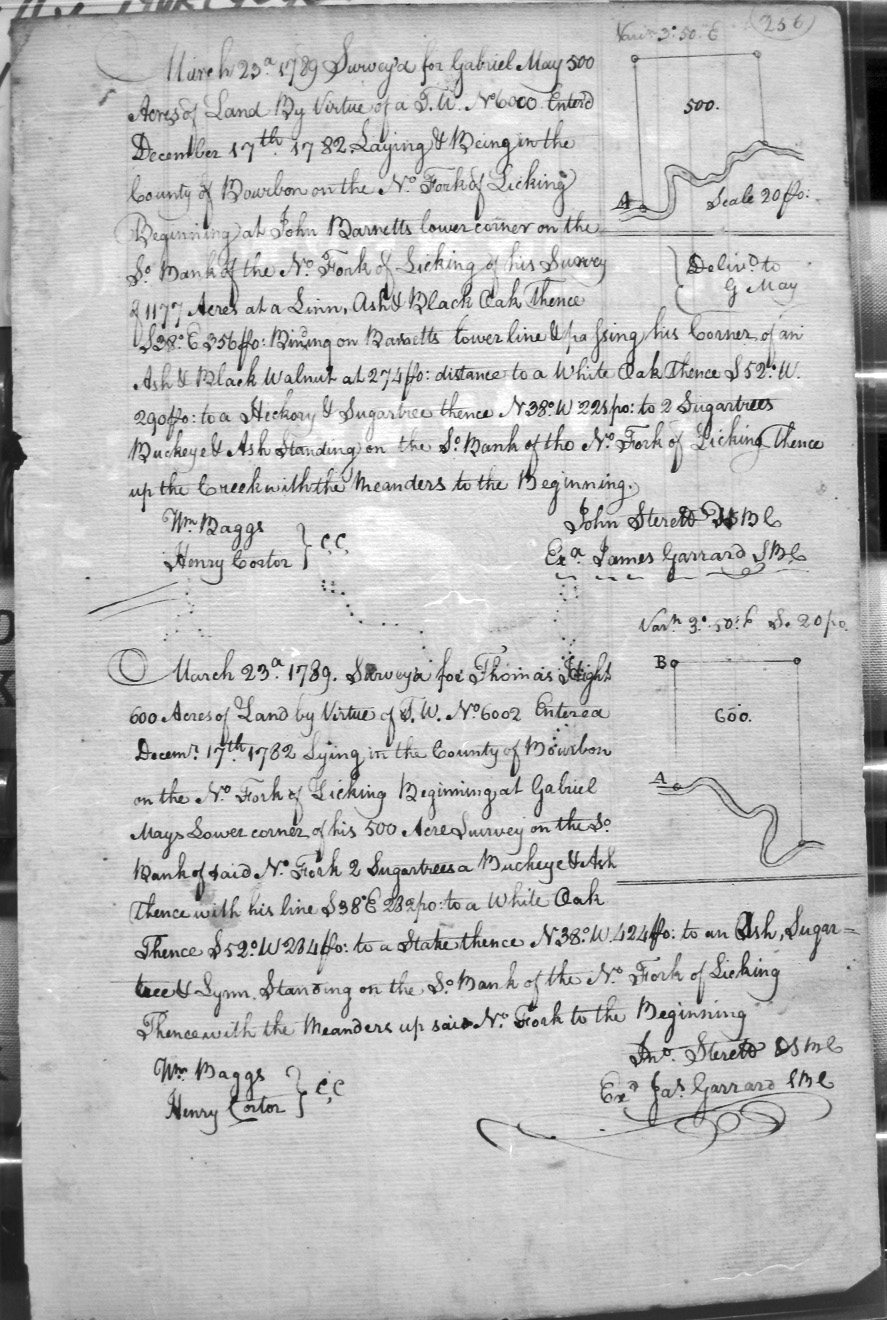 Varn 3°.50.E (256)
March 23d. 1789 Survey'd for Gabriel May 500
Acres of Land By Virtue of a T.W. No 6000 Enterd
December 17th. 1782 Laying & Being in the
County of Bourbon on the No. Fork of Licking
Beginning at John Barnetts lower corner on the
So. Bank of the No. Fork of Licking of his Survey
of 1177 Acres at a Linn, Ash & Black Oak Thence
S38°. E 356 po: Binding on Barnetts lower line & passing his Corner of an
Ash & Black Walnut at 274 po: distance to a White Oak Thence S52°. W.
290 po: to a Hickory & Sugartree thence N38°. W 225 po: to 2 Sugartrees
Buckeye & Ash Standing on the So. Bank of the No. Fork of Licking Thence
up the Creek with the Meanders to the Beginning.
500.
A
Scale 20 po:
Deliv.d to
G May
Wm Baggs
Henry Cortor } C,C,
John Sterett DSBC
Exa. James Garrard SBC
Varn 3°.50:E S. 20 po.
March 23d. 1789. Survey'd for Thomas Hight
600 Acres of Land by Virtue of T.W. No. 6002 Entered
Decemr. 17th. 1782 Lying in the County of Bourbon
on the No. Fork of Licking Beginning at Gabriel
Mays Lower corner of his 500 Acre Survey on the So.
Bank of said No. Fork 2 Sugartrees a Buckeye & Ash
Thence with his line S38°E 232 po: to a White Oak
Thence S52°. W 234 po: to a Stake thence N38°. W. 424 po: to an Ash, Sugar=
tree & Lynn, Standing on the So. Bank of the No. Fork of Licking
Thence with the Meanders up said No. Fork to the Beginning
B
600.
A
Wm. Baggs
Henry Cortor } C,C
Jno. Sterett DSBC
Exd. Jas. Garrard SBC